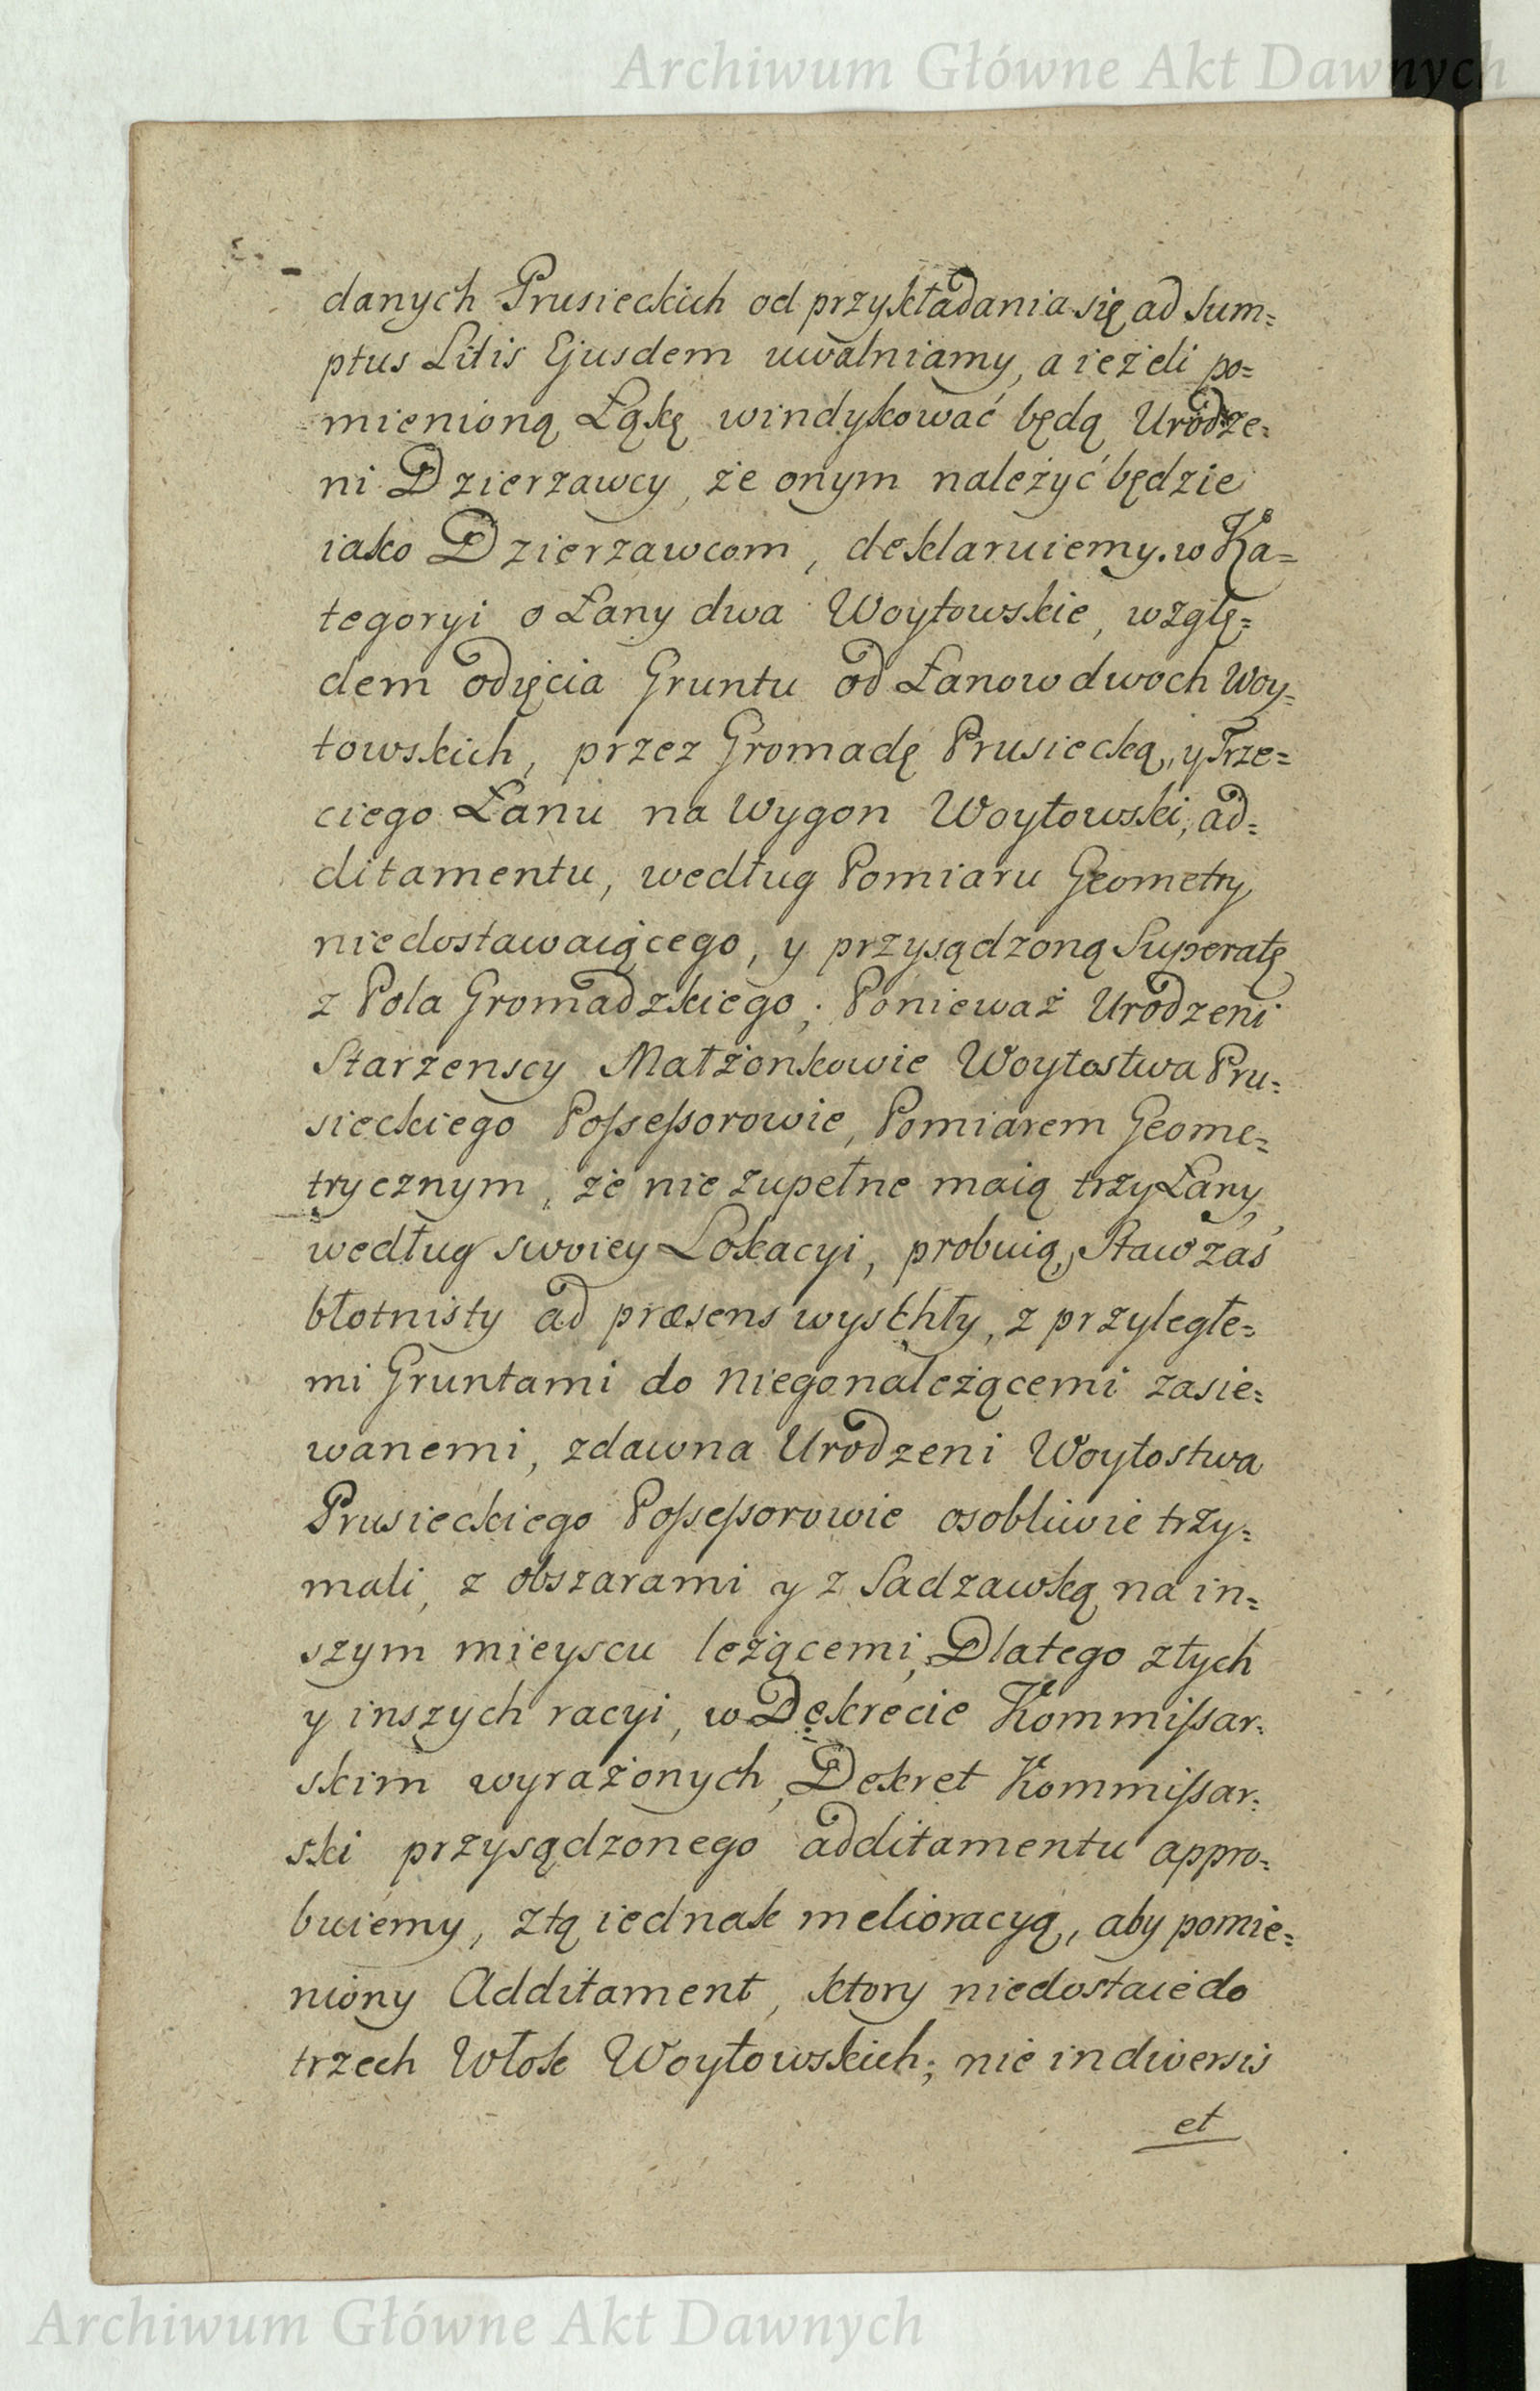 Archiwum Główne Akt Dawnych
danych Prusieckich od przykładania się ad Sum=
ptus Litis Ejusdem uwalniamy, a ieżeli po=
mienioną Łąkę windykować będą Urodze=
ni Dzierzawcy, że onym należyć będzie
iako Dzierzawcom, deklaruiemy. w Ka=
tegoryi o Łany dwa Woytowskie, wzglę=
dem odięcia Gruntu od Łanow dwoch Woy=
towskich, przez Gromadę Prusiecką, y Trze=
ciego Łanu na Wygon Woytowski, ad=
ditamentu, według Pomiaru Geometry
niedostawaiącego, y przysądzoną Superatę
z Pola Gromadzkiego; Ponieważ Urodzeni
Starzenscy Małżonkowie Woytostwa Pru=
sieckiego Possessorowie, Pomiarem Geome=
trycznym, że nie zupełne maią trzy Łany,
według swoiey Lokacyi, probuią, Staw zaś
błotnisty ad præsens wyschły, z przyległe=
mi Gruntami do niego należącemi zasie=
wanemi, zdawna Urodzeni Woytostwa
Prusieckiego Possessorowie osobliwie trzy=
mali, z obszarami y z Sadzawką na in=
szym mieyscu leżącemi, Dlatego ztych
y inszych racyi, w Dekrecie Kommissar=
skim wyrażonych, Dekret Kommissar=
ski przysądzonego additamentu appro=
buiemy, ztą iednak melioracyą, aby pomie=
niony Additament, ktory niedostaie do
trzech Włok Woytowskich; nie in diversis
et
Archiwum Główne Akt Dawnych